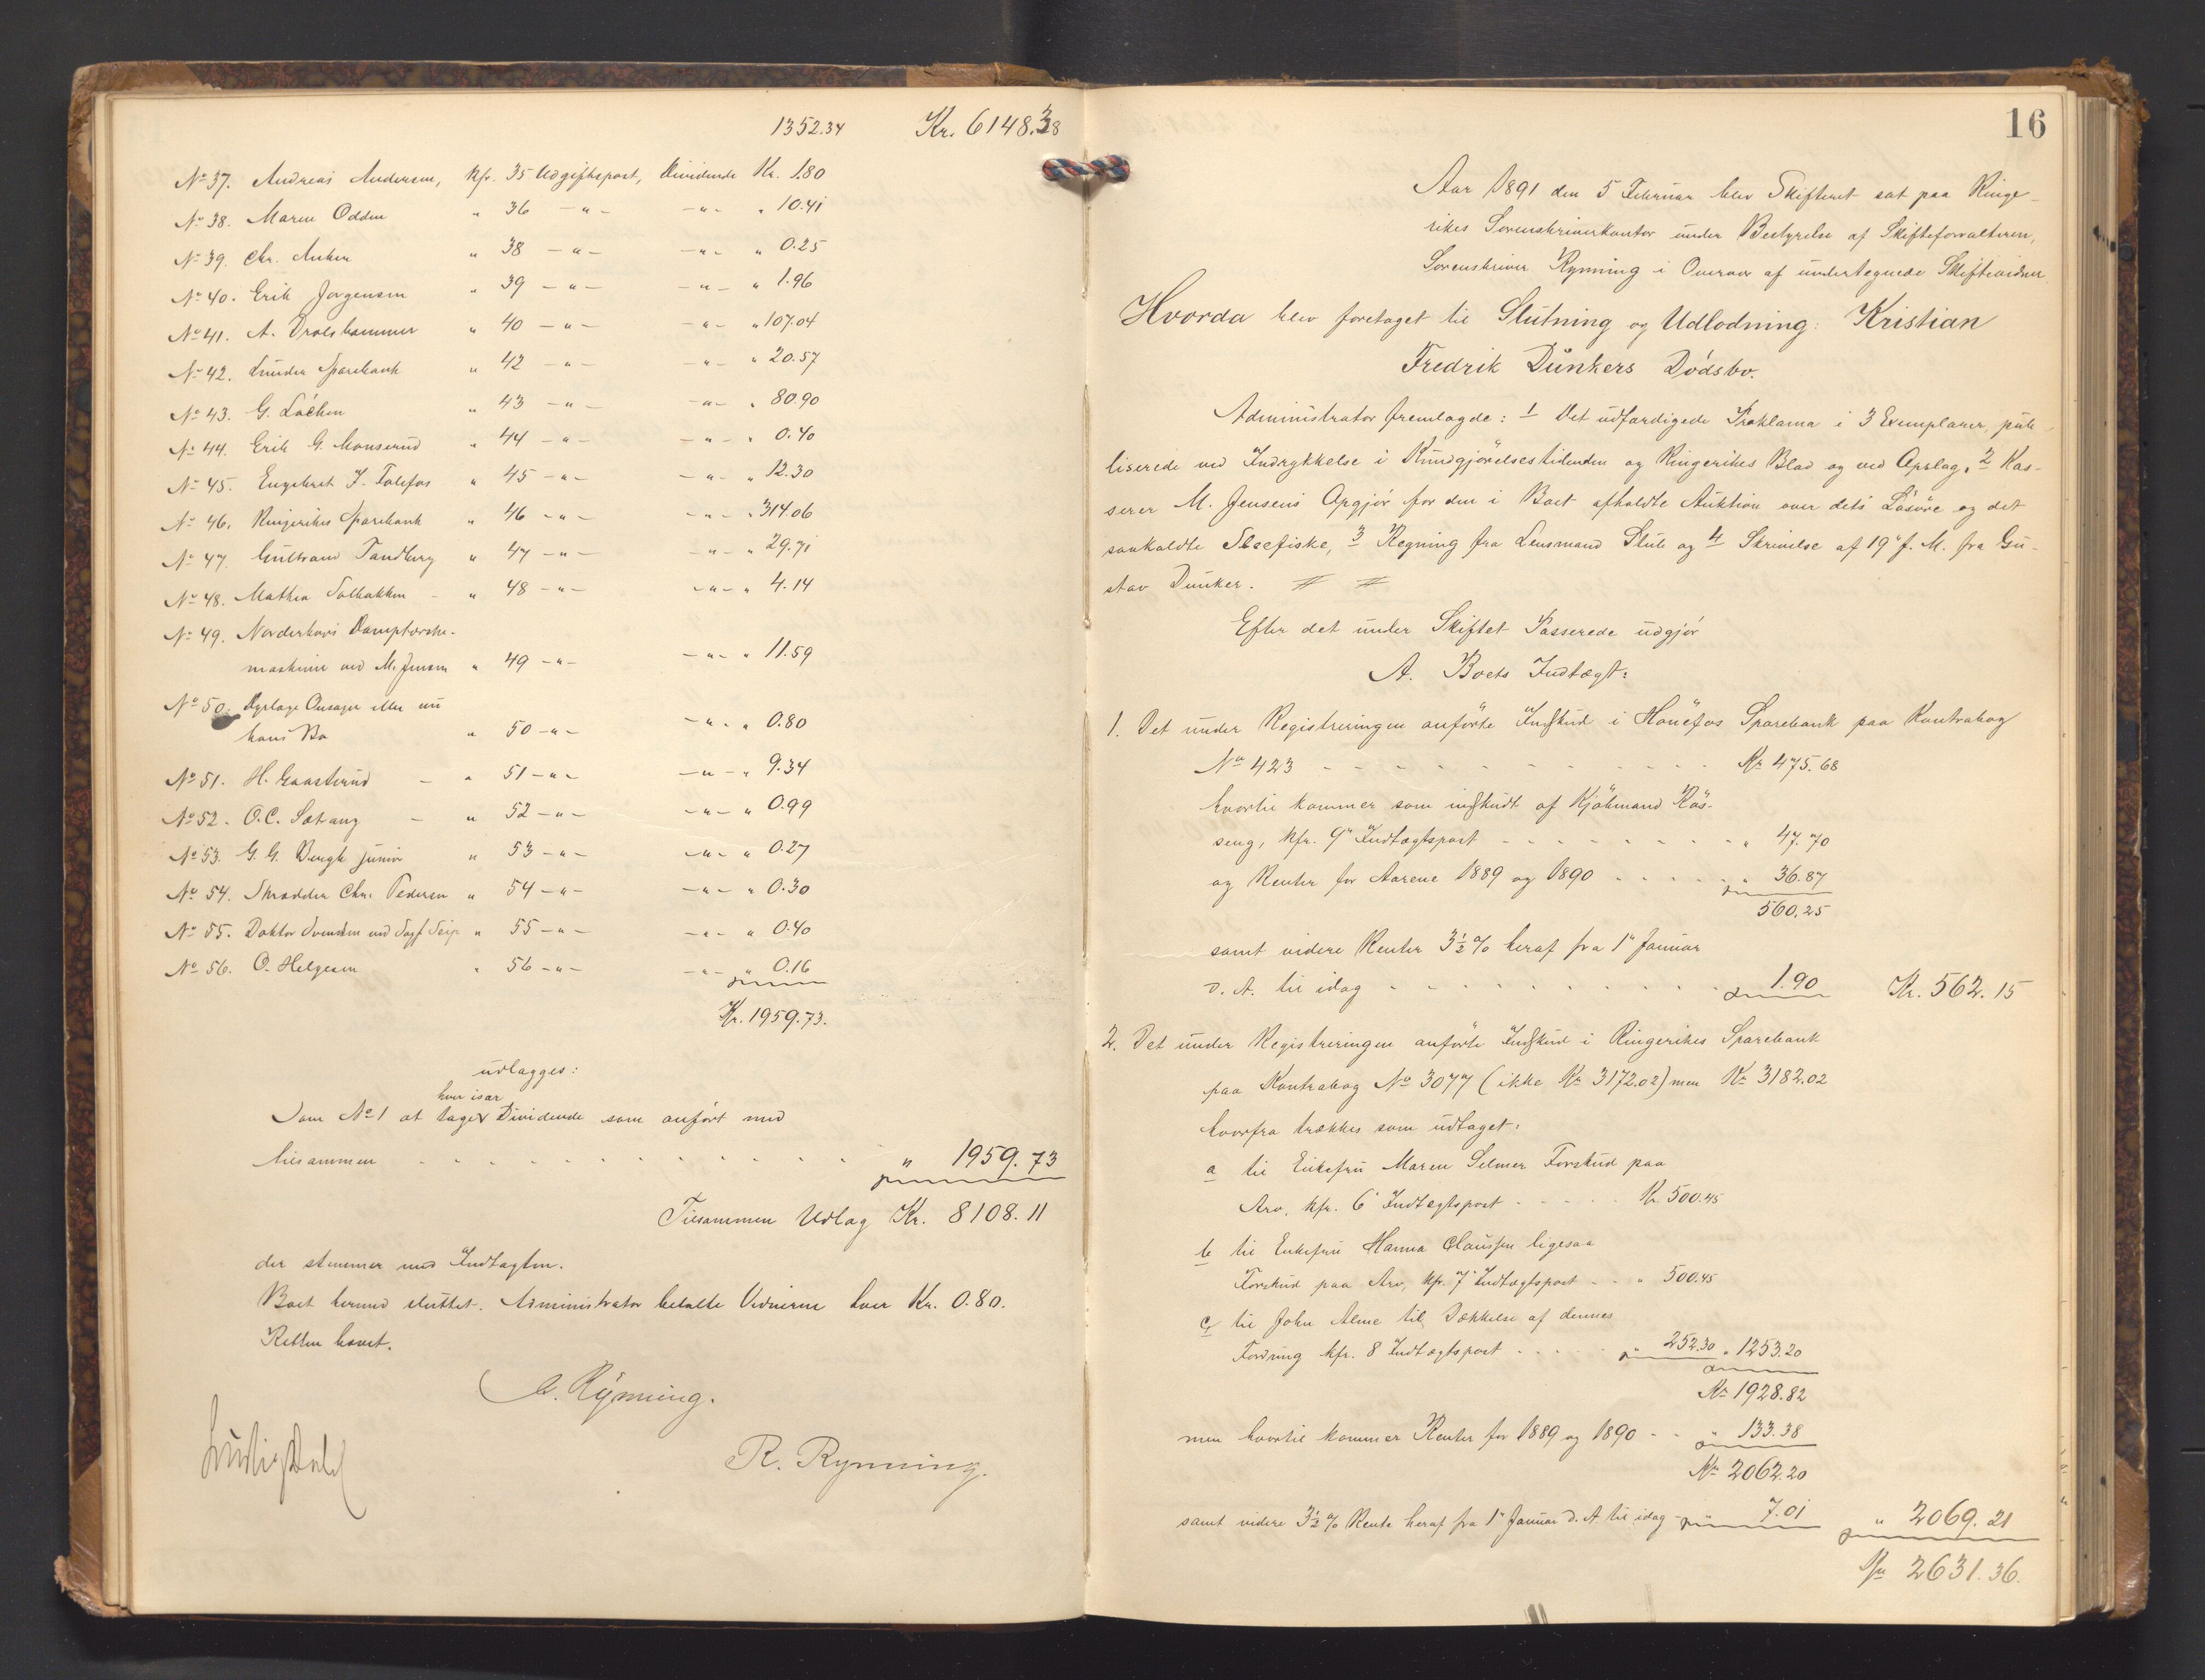 1352.34 Kr. 6148.38
No 37. Andreas Andersen, kfr. 35 Udgiftspost, Dividende Kr. 1.80
No 38. Maren Odden " 36 -"- -"- " 10.41
No 39. Chr. Anker " 38 -"- -"- " 0.25
No 40. Erik Jørgensen " 39 -"- -"- " 1.96
No 41. A. Drolshammer " 40 -"- -"- " 107.04
No 42. Lunder Sparebank " 42 -"- -"- " 20.57
No 43. G. Løchen " 43 -"- -"- " 80.90
No 44. Erik G. Monserud " 44 -"- -"- " 0.40
No 45. Engebret J. Folefos " 45 -"- -"- " 12.30
No 46. Ringerikes Sparebank " 46 -"- -"- " 314.06
No 47. Gulbrand Tandberg " 47 -"- -"- " 29.71
No 48. Mathea Solbakken - " 48 -"- -"- " 4.14
No 49. Norderhovs Damptærske-
maskine ved M. Jensen " 49 -"- -"- " 11.59
No 50. Onsager eller nu
hans Bo " 50 -"- -"- " 0.80
No 51. H. Gaasterud - " 51 -"- -"- " 9.34
No 52. O.C. Sætrang - " 52 -"- -"- " 0.99
No 53. G. G. Bergh junior " 53 -"- -"- " 0.27
No 54. Skrædder Chr. Pedersen " 54 -"- -"- " 0.30
No 55. Doktor Svendsen ved Sagf. Seip " 55 -"- -"- " 0.40
No 56. O. Helgesen " 56 -"- -"- " 0.16
Kr. 1959.73.
udlægges:
hver især
Som No 1 at tage Dividende som anført med
tilsammen " 1959.73
Tilsammen Udlæg Kr. 8108.11
der stemmer med Indtægten.
Boet hermed sluttet. Administrator betalte Vidnerne hver Kr. 0.80.
Retten hævet.
Rynning.
Ludvig Dahl
R. Rynning.
16
Aar 1891 den 5 Februar blev Skifteret sat paa Ringe-
rikes Sorenskriverkontor under Bestyrelse af Skifteforvalteren,
Sorenskriver Rynning i Overvær af undertegnede Skiftevidner
Hvorda blev foretaget til Slutning og Udlodning: Kristian
Fredrik Dunkers Dødsbo.
Administrator fremlagde: 1 Det udfærdigede Proklama i 3 Exemplarer, pub-
liserede ved Indrykkelse i Kundgjørelsestidenden og Ringerikes Blad og ved Opslag, 2 Kas-
serer M. Jensens Opgjør for den i Boet afholdte Auktion over dets Løsøre og det
saakaldte Steefiske, 3 Regning fra Lensmand Stub og 4 Skrivelse af 19' f. M. fra Gu-
stav Dunker. # #
Efter det under Skiftet Passerede udgjør
A. Boets Indtægt:
1. Det under Registreringen anførte Indskud i Hønefos Sparebank paa Kontrabog
No 423 - - - - Kr 475.68
hvortil kommer som indskudt af Kjøbmand Røs-
seng, kfr. 9" Indtægtspost - - - " 47.70
og Renter for Aarene 1889 og 1890 - - - " 36.87
560.25
samt videre Renter 3½ % heraf fra 1" Januar
d. A. til idag - - - 1.90 Kr. 562.15
2. Det under Registreringen anførte Indskud i Ringerikes Sparebank
paa Kontrabog No 3077 (ikke Kr 3172.02) men Kr 3182.02
hvorfra trækkes som udtaget:
a til Enkefru Maren Selmer Forskud paa
Arv, kfr. 6' Indtægtspost - - - Kr 500.45
b til Enkefru Hanna Claussen ligesaa
Forskud paa Arv, kfr. 7' Indtægtspost - - " 500.45
c til John Alme til Dækkelse af dennes
Fordring kfr. 8 Indtægtspost - - - " 252.30 " 1253.20
Kr 1928.82
men hvortil kommer Renter for 1889 og 1890 - - " 133.38
Kr 2062.20
samt videre 3½ % Rente heraf fra 1" Januar d. A. til idag - " 7.01 " 2069.21
Kr 2631.36.